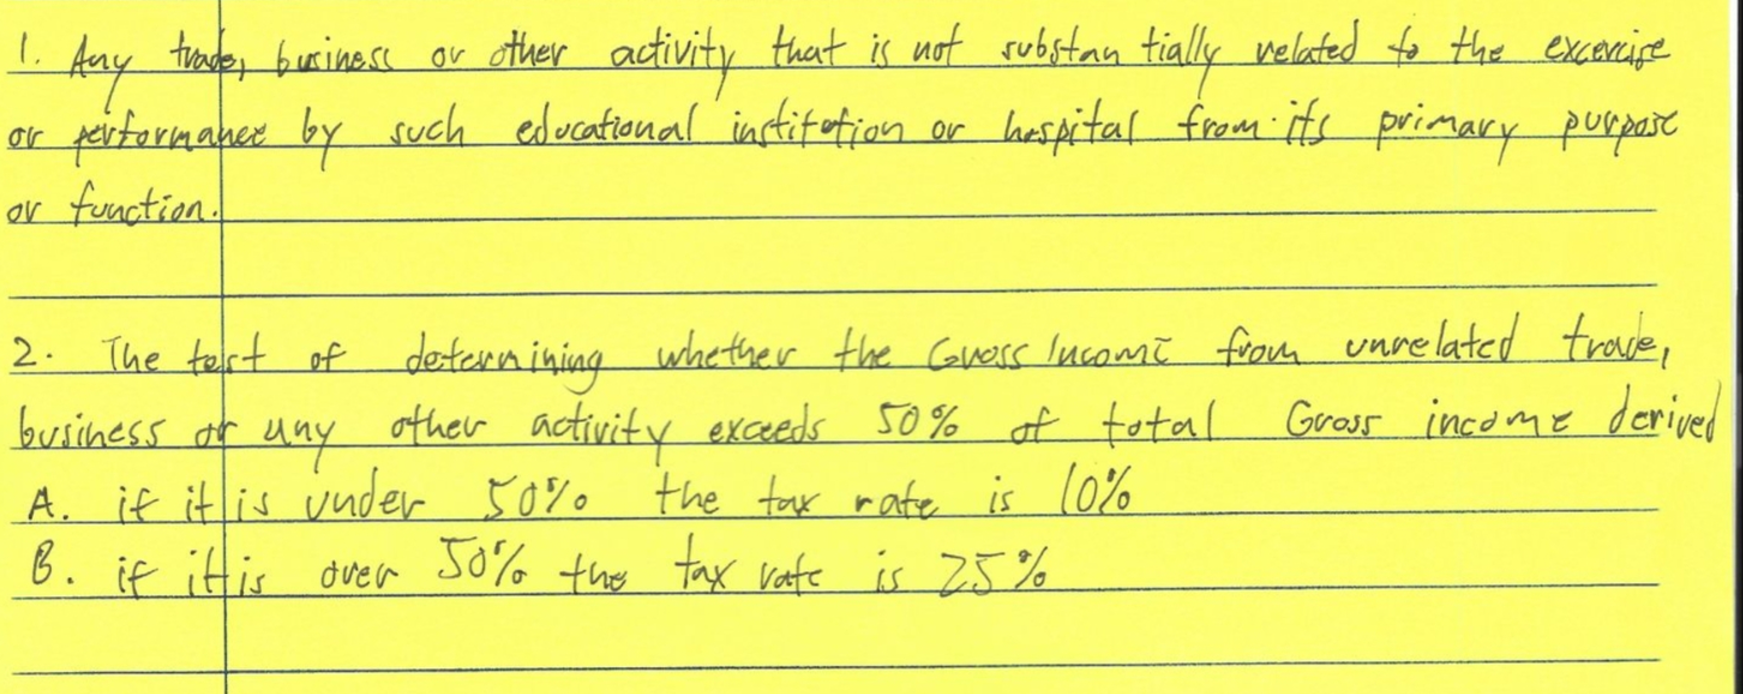 1. Any trade, business or other activity that is not substan tially related to the excercise
or performance by such educational institution or hospital from its primary purpose
or function.
2. The test of determining whether the Gross Income from unrelated trade,
business or any other activity exceeds 50% of total Gross income derived
A. if it is under 50% the tax rate is 10%
B. if it is over 50% the tax rate is 25%